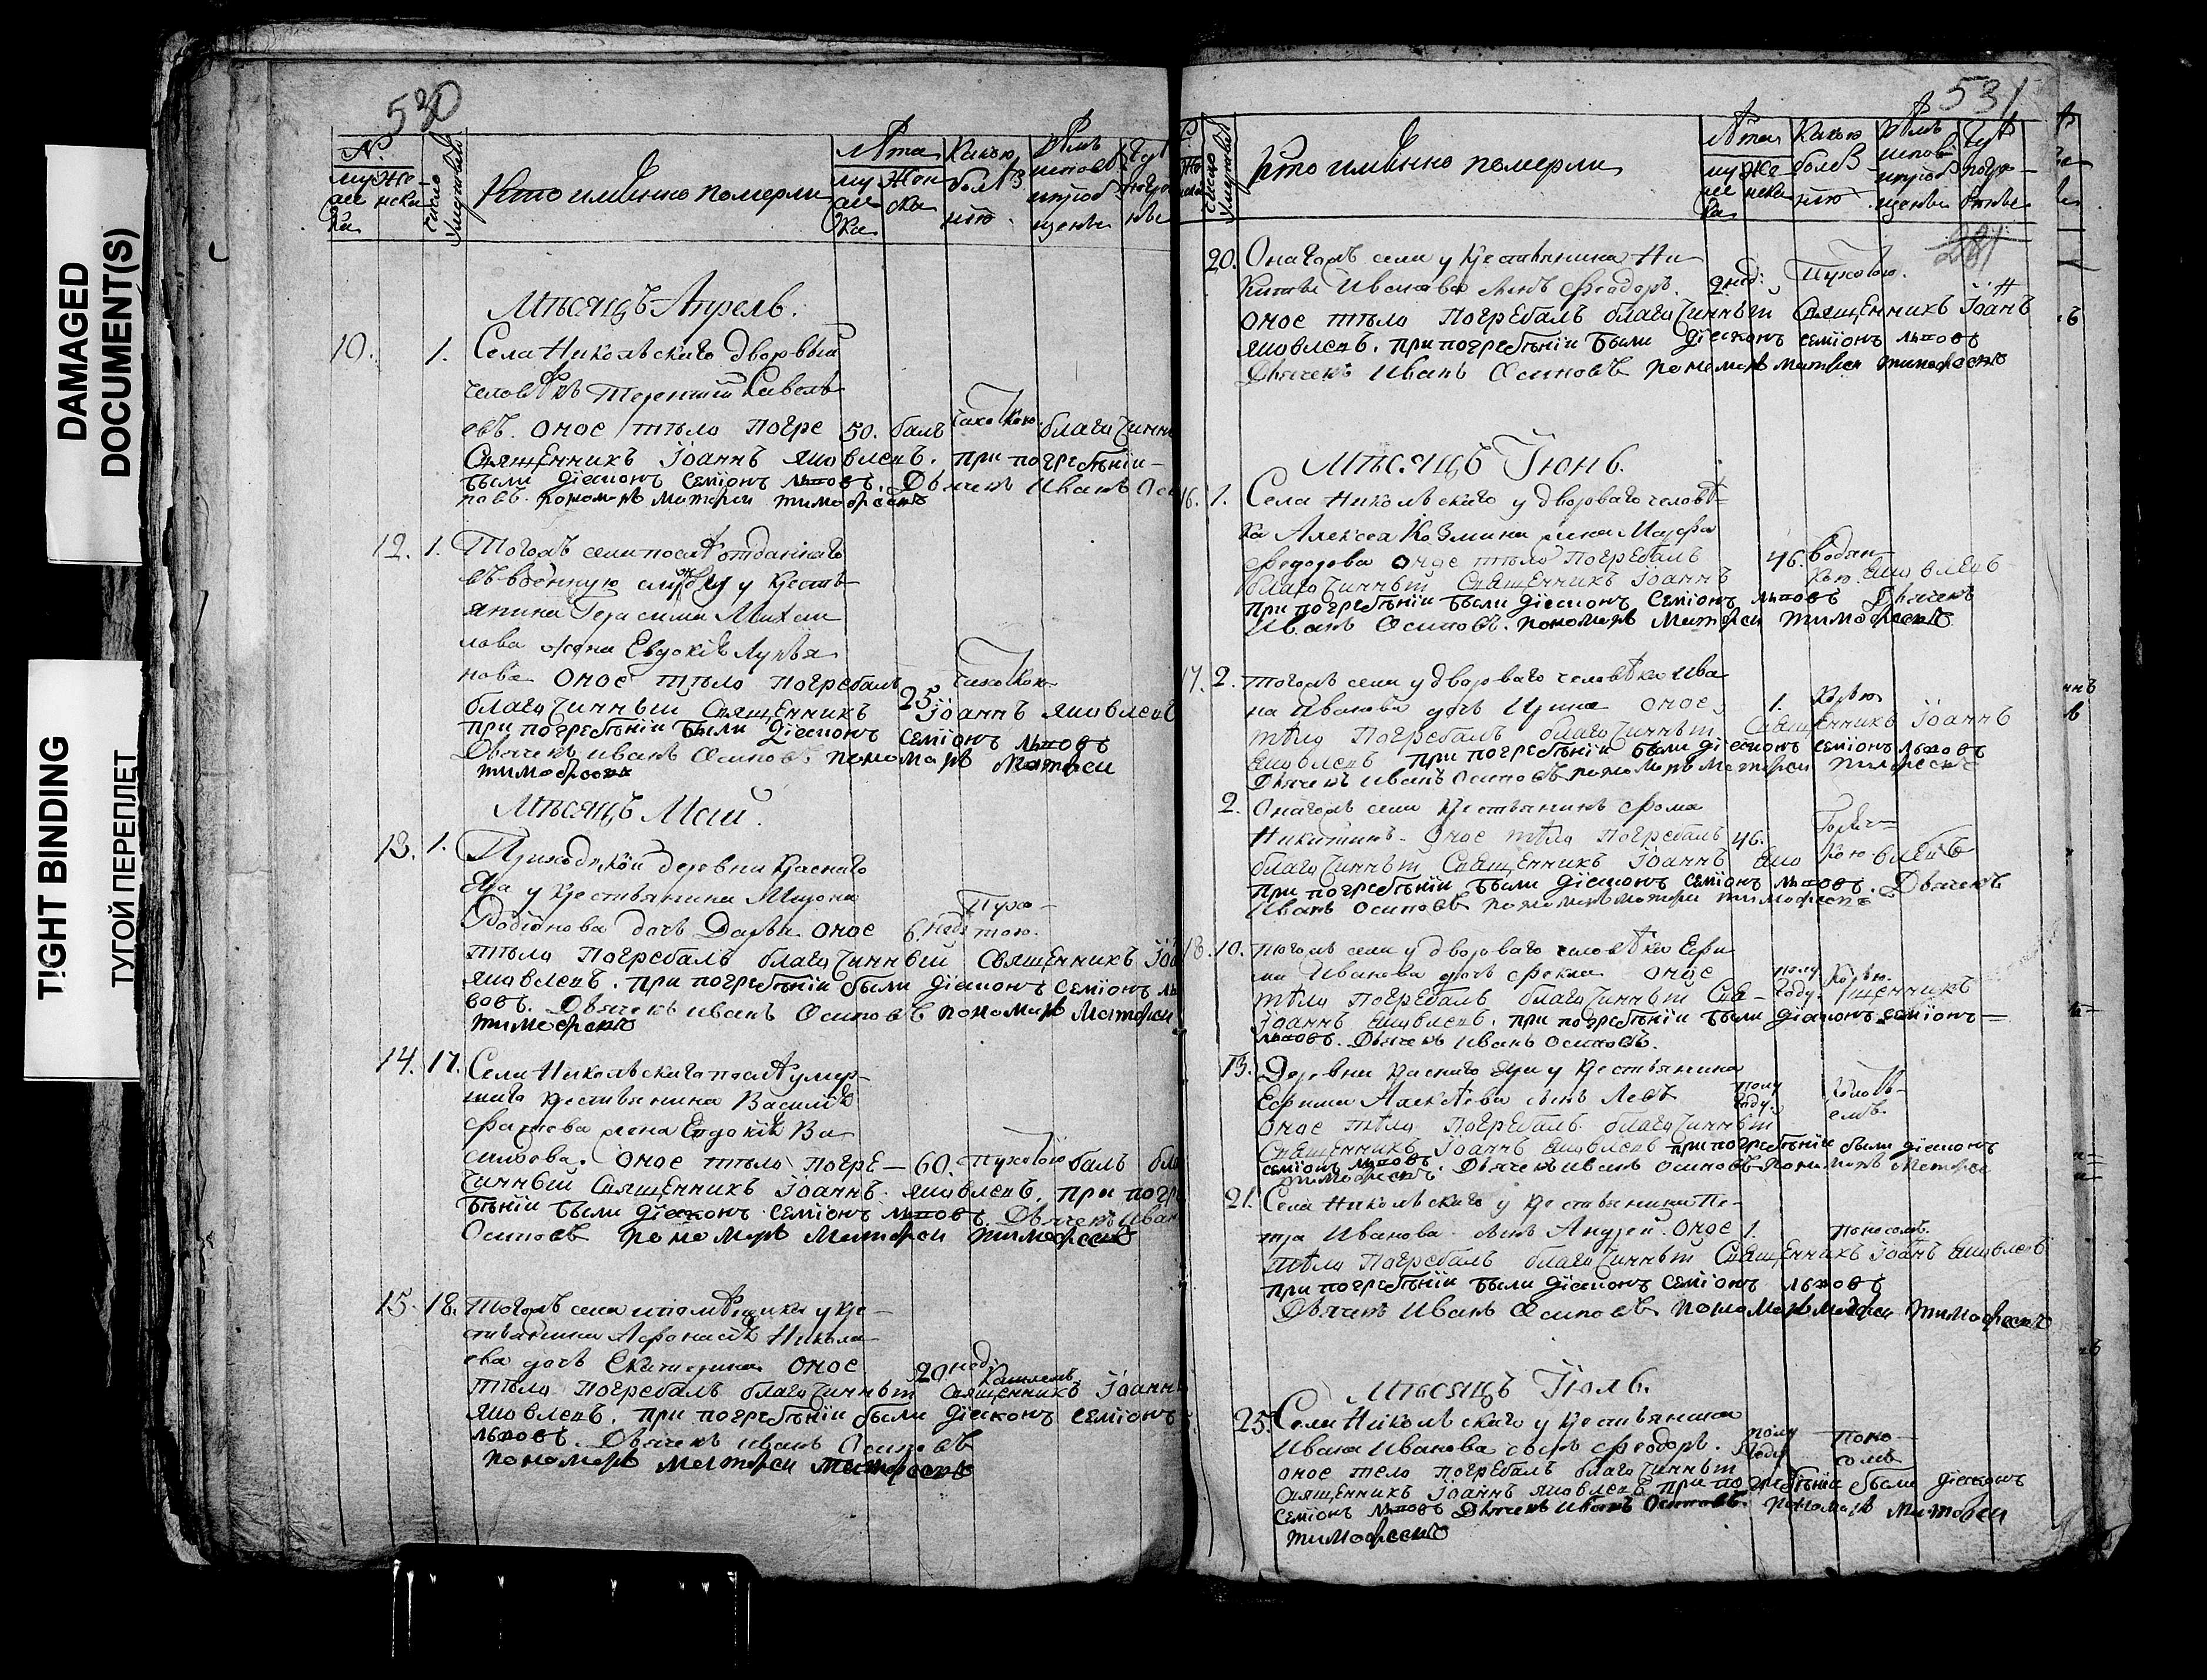 DAMAGED
DOCUMENT(S)
TIGHT BINDING
ТУГОЙ ПЕРЕПЛЕТ
530
№
муже
ска
женска
число умертвій
Кто имѣнно померли
Лѣта
муже
ска
жен
ска
Какою
болѣз
нію
Мѣсяцъ Апрель.
10. 1. Села Никольскаго дворовый
человѣкъ Терентій Савель
евъ. оное тѣло погре 50. балъ чахоткою благочинны
Священникъ Іоаннъ Яковлевъ. при погребѣніи
были діаконъ Семіонъ Львовъ. Дьячекъ Иванъ Оси
повъ. пономарь Матфеи Тимофеевъ
12. 1. Тогожъ села послѣ отданнаго
въ военную службу у крестъ
янина Герасима Михаи
лова жена Евдокія Лукья
нова оное тѣло погребалъ 25. чахоткою
благочинный Священникъ Іоаннъ Яковлевъ
при погребѣніи были діаконъ Семіонъ Львовъ
Дьячекъ Иванъ Осиповъ. пономарь Матфеи
Тимофеевъ
Мѣсяцъ Маій.
13. 1. Приходской деревни Краснаго
Яра у крестьянина Мирона
Родіонова дочь Дарья оное 6. нед: Сухо
тою.
тѣло погребалъ благочинный Священникъ Іоа
Яковлевъ. при погребѣніи были діаконъ Семіонъ Ль
вовъ. Дьячекъ Иванъ Осиповъ пономарь Матфеи
Тимофеевъ
14. 17. Села Никольскаго послѣ умер
шаго крестьянина Василія
жена Евдокія Ва
сильева. оное тѣло погре 60. балъ бла
гочинный Священникъ Іоаннъ Яковлевъ. при погре
бѣніи были діаконъ Семіонъ Львовъ. Дьячекъ Иван
Осиповъ пономарь Матфеи Тимофеевъ
15. 18. Тогожъ села и помѣщика у кре
стьянина Афонасія Никола
ева дочь Екатерина оное 20. нед: Кашлемъ
тѣло погребалъ благочинный Священникъ Іоаннъ
Яковлевъ. при погребѣніи были діаконъ Семіонъ
Львовъ. Дьячекъ Иванъ Осиповъ
пономарь Матфеи Тимофеевъ
531
число умертвій
Кто имѣнно померли
Лѣта
муже
ска
женска
Какою
болѣз
нію
281
20. Онагожъ села у крестьянина Ни
киты Иванова сынъ Феодоръ. 2 нед:
оное тѣло погребалъ благочинный Священникъ Іоаннъ
Яковлевъ. при погребѣніи были діаконъ Семіонъ Львовъ
Дьячекъ Иванъ Осиповъ пономарь Матвеи Тимофеевъ
Мѣсяцъ Іюнь.
16. 1. Села Никольскаго у двороваго человѣ
ка Алексея Козмина жена Марфа
Федорова оное тѣло погребалъ 46. водян
кою.
благочинный Священникъ Іоаннъ Яковлевъ
при погребѣніи были діаконъ Семіонъ Львовъ Дьячекъ
Иванъ Осиповъ. пономарь Матфеи Тимофеевъ
17. 2. Тогожъ села у двороваго человѣка Ива
на Иванова дочь Ирина оное 1. Корью
тѣло погребалъ благочинный Священникъ Іоаннъ
Яковлевъ при погребѣніи были діаконъ Семіонъ Львовъ
Дьячекъ Иванъ Осиповъ пономарь Матфеи Тимофеевъ
2. Онагожъ села крестьянинъ Фома
Никитинъ. оное тѣло погребалъ 46. Горяч
кою
благочинный Священникъ Іоаннъ Яковлевъ
при погребѣніи были діаконъ Семіонъ Львовъ. Дьячекъ
Иванъ Осиповъ пономарь Матфеи Тимофеевъ
18. 10. Тогожъ села у двороваго человѣка Ефи
ма Иванова дочь Фекла оное полу
году. Корью.
тѣло погребалъ благочинный Священникъ
Іоаннъ Яковлевъ. при погребѣніи были діаконъ Семіонъ
Львовъ. Дьячекъ Иванъ Осиповъ.
13. Деревни Краснаго Яра у крестьянина
Ефима Алексѣева сынъ Левъ полу
году.
оное тѣло погребалъ благочинный
Священникъ Іоаннъ Яковлевъ при погребѣніи были діаконъ
Семіонъ Львовъ. Дьячекъ Иванъ Осиповъ пономарь Матфеи
Тимофеевъ
21. Села Никольскаго у крестьянина Пе
тра Иванова сынъ Андрей. оное 1. поносомъ.
тѣло погребалъ благочинный Священникъ Іоаннъ Яковлевъ
при погребѣніи были діаконъ Семіонъ Львовъ
Дьячекъ Иванъ Осиповъ пономарь Матфеи Тимофеевъ
Мѣсяцъ Іюль.
25. Села Никольскаго у крестьянина
Ивана Иванова сынъ Феодоръ. полу
году поно
сомъ
оное тело погребалъ благочинный
Священникъ Іоаннъ Яковлевъ при погребѣніи были діаконъ
Семіонъ Львовъ Дьячекъ Иванъ Осиповъ. пономарь Матфеи
Тимофеевъ